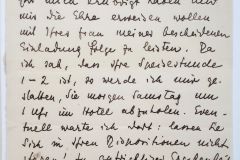 für mich ermöglicht haben und
mir die Ehre erweisen wollen
mit Ihrer Frau meiner bescheidenen
Einladung Folge zu leisten. Da
ich sah, dass Ihre Speisestunde
1-2 ist, so werde ich mir ge-
statten, Sie morgen Samstag um
1 Uhr im Hotel abzuholen. Even-
tuell warte ich dort: lassen Sie
sich in Ihren Dispositionen nicht
stören! In aufrichtiger